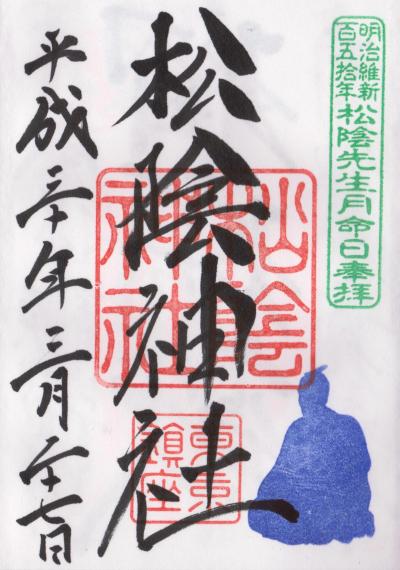 明治維新
百五拾年
松陰先生月命日奉拝
松陰神社
松陰神社
東京
鎮座
平成三十年三月二十七日